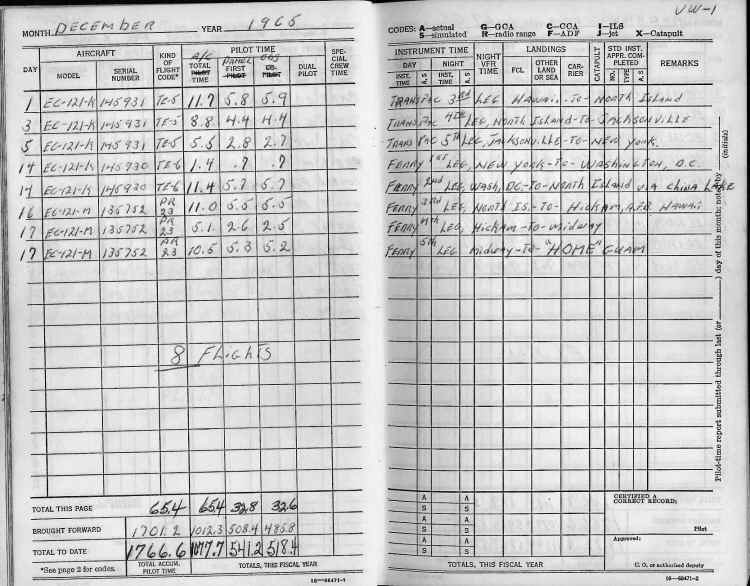 VW-1
MONTH DECEMBER YEAR 1965
AIRCRAFT KIND OF FLIGHT CODE* PILOT TIME SPECIAL CREW TIME
DAY MODEL SERIAL NUMBER A/C TOTAL PILOT TIME PANEL FIRST PILOT OBS CO-PILOT DUAL PILOT
1 EC-121-K 145931 TE-5 11.7 5.8 5.9
3 EC-121-K 145931 TE-5 8.8 4.4 4.4
5 EC-121-K 145931 TE-5 5.5 2.8 2.7
14 EC-121-K 145930 TE-6 1.4 .7 .7
14 EC-121-K 145930 TE-6 11.4 5.7 5.7
16 EC-121-M 135752 PR 23 11.0 5.5 5.5
17 EC-121-M 135752 PR 23 5.1 2.6 2.5
17 EC-121-M 135752 23 10.5 5.3 5.2
8 FLIGHTS
TOTAL THIS PAGE 65.4 65.4 32.8 32.6
BROUGHT FORWARD 1701.2 1012.3 508.4 485.8
TOTAL TO DATE 1766.6 1077.7 541.2 518.4
*See page 2 for codes. TOTAL ACCUM. PILOT TIME TOTALS, THIS FISCAL YEAR
16—68471-1
CODES: A—actual G—GCA C—CCA I—ILS
S—simulated R—radio range F—ADF J—jet X—Catapult
INSTRUMENT TIME NIGHT VFR TIME LANDINGS CATAPULT STD INST. APPR. COMPLETED REMARKS
DAY NIGHT FCL OTHER LAND OR SEA CARRIER NO. TYPE A, S
INST. TIME A, S INST. TIME A, S
TRANSPAC 3RD LEG HAWAII-TO-NORTH ISLAND
TRANSPAC 4TH LEG, NORTH ISLAND-TO-JACKSONVILLE
TRANSPAC 5TH LEG, JACKSONVILLE-TO-NEW YORK.
FERRY 1ST LEG, NEW YORK-TO-WASHINGTON, D.C.
FERRY 2ND LEG, WASH, DC-TO-NORTH ISLAND VIA CHINA LAKE
FERRY 3RD LEG, NORTH IS.-TO-HICKAM, A.F.B. HAWAII
FERRY 4TH LEG, HICKAM-TO-MIDWAY
FERRY 5TH LEG MIDWAY-TO-"HOME" GUAM
Pilot-time report submitted through last (or ) day of this month, noted by (initials)
A A CERTIFIED A CORRECT RECORD:
S S
A A Pilot
S S Approved:
A A
S S
TOTALS, THIS FISCAL YEAR C. O. or authorized deputy
16—68471-2